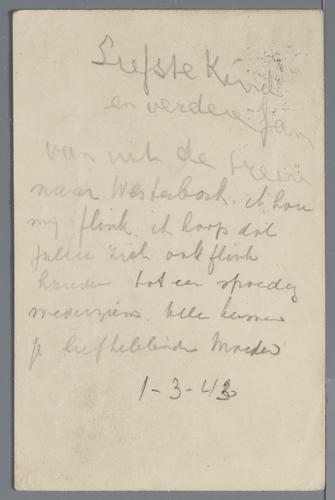 Liefste Kind
en verdere fam
van uit de trein
naar Westerbork. ik hou
mij flink. ik hoop dat
jullie zich ook flink
houden tot een spoedig
wederziens. Vele kussen
je liefhebbende Moeder
1-3-43